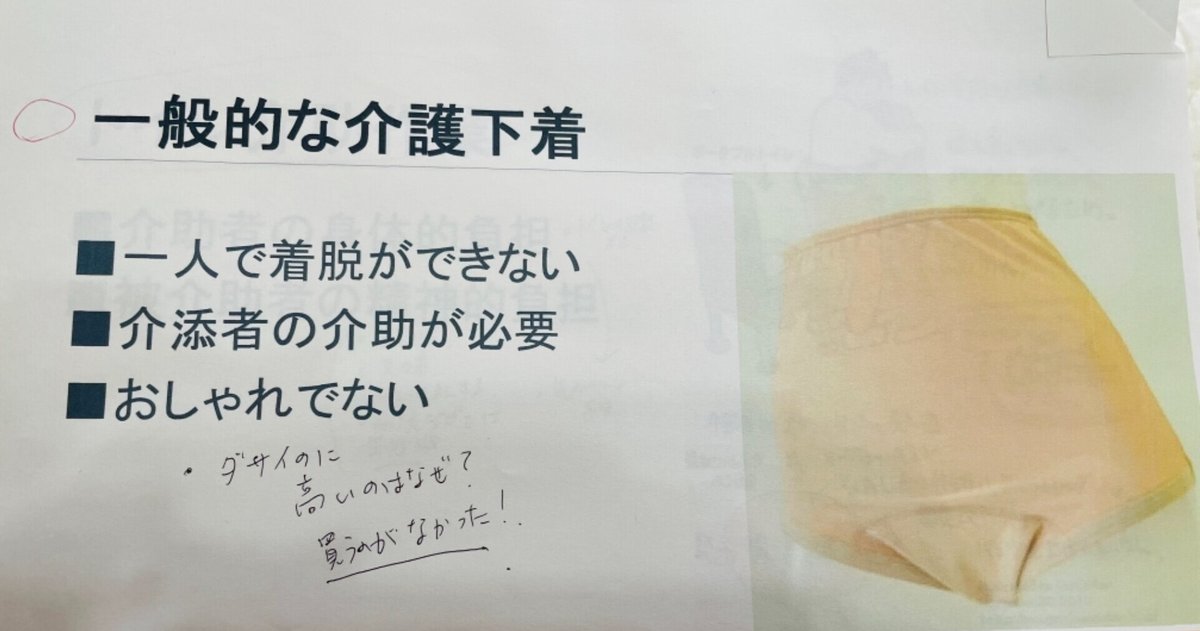 一般的な介護下着
■一人で着脱ができない
■介添者の介助が必要
■おしゃれでない
・ダサイのに
高いのはなぜ?
買うのがなかった!